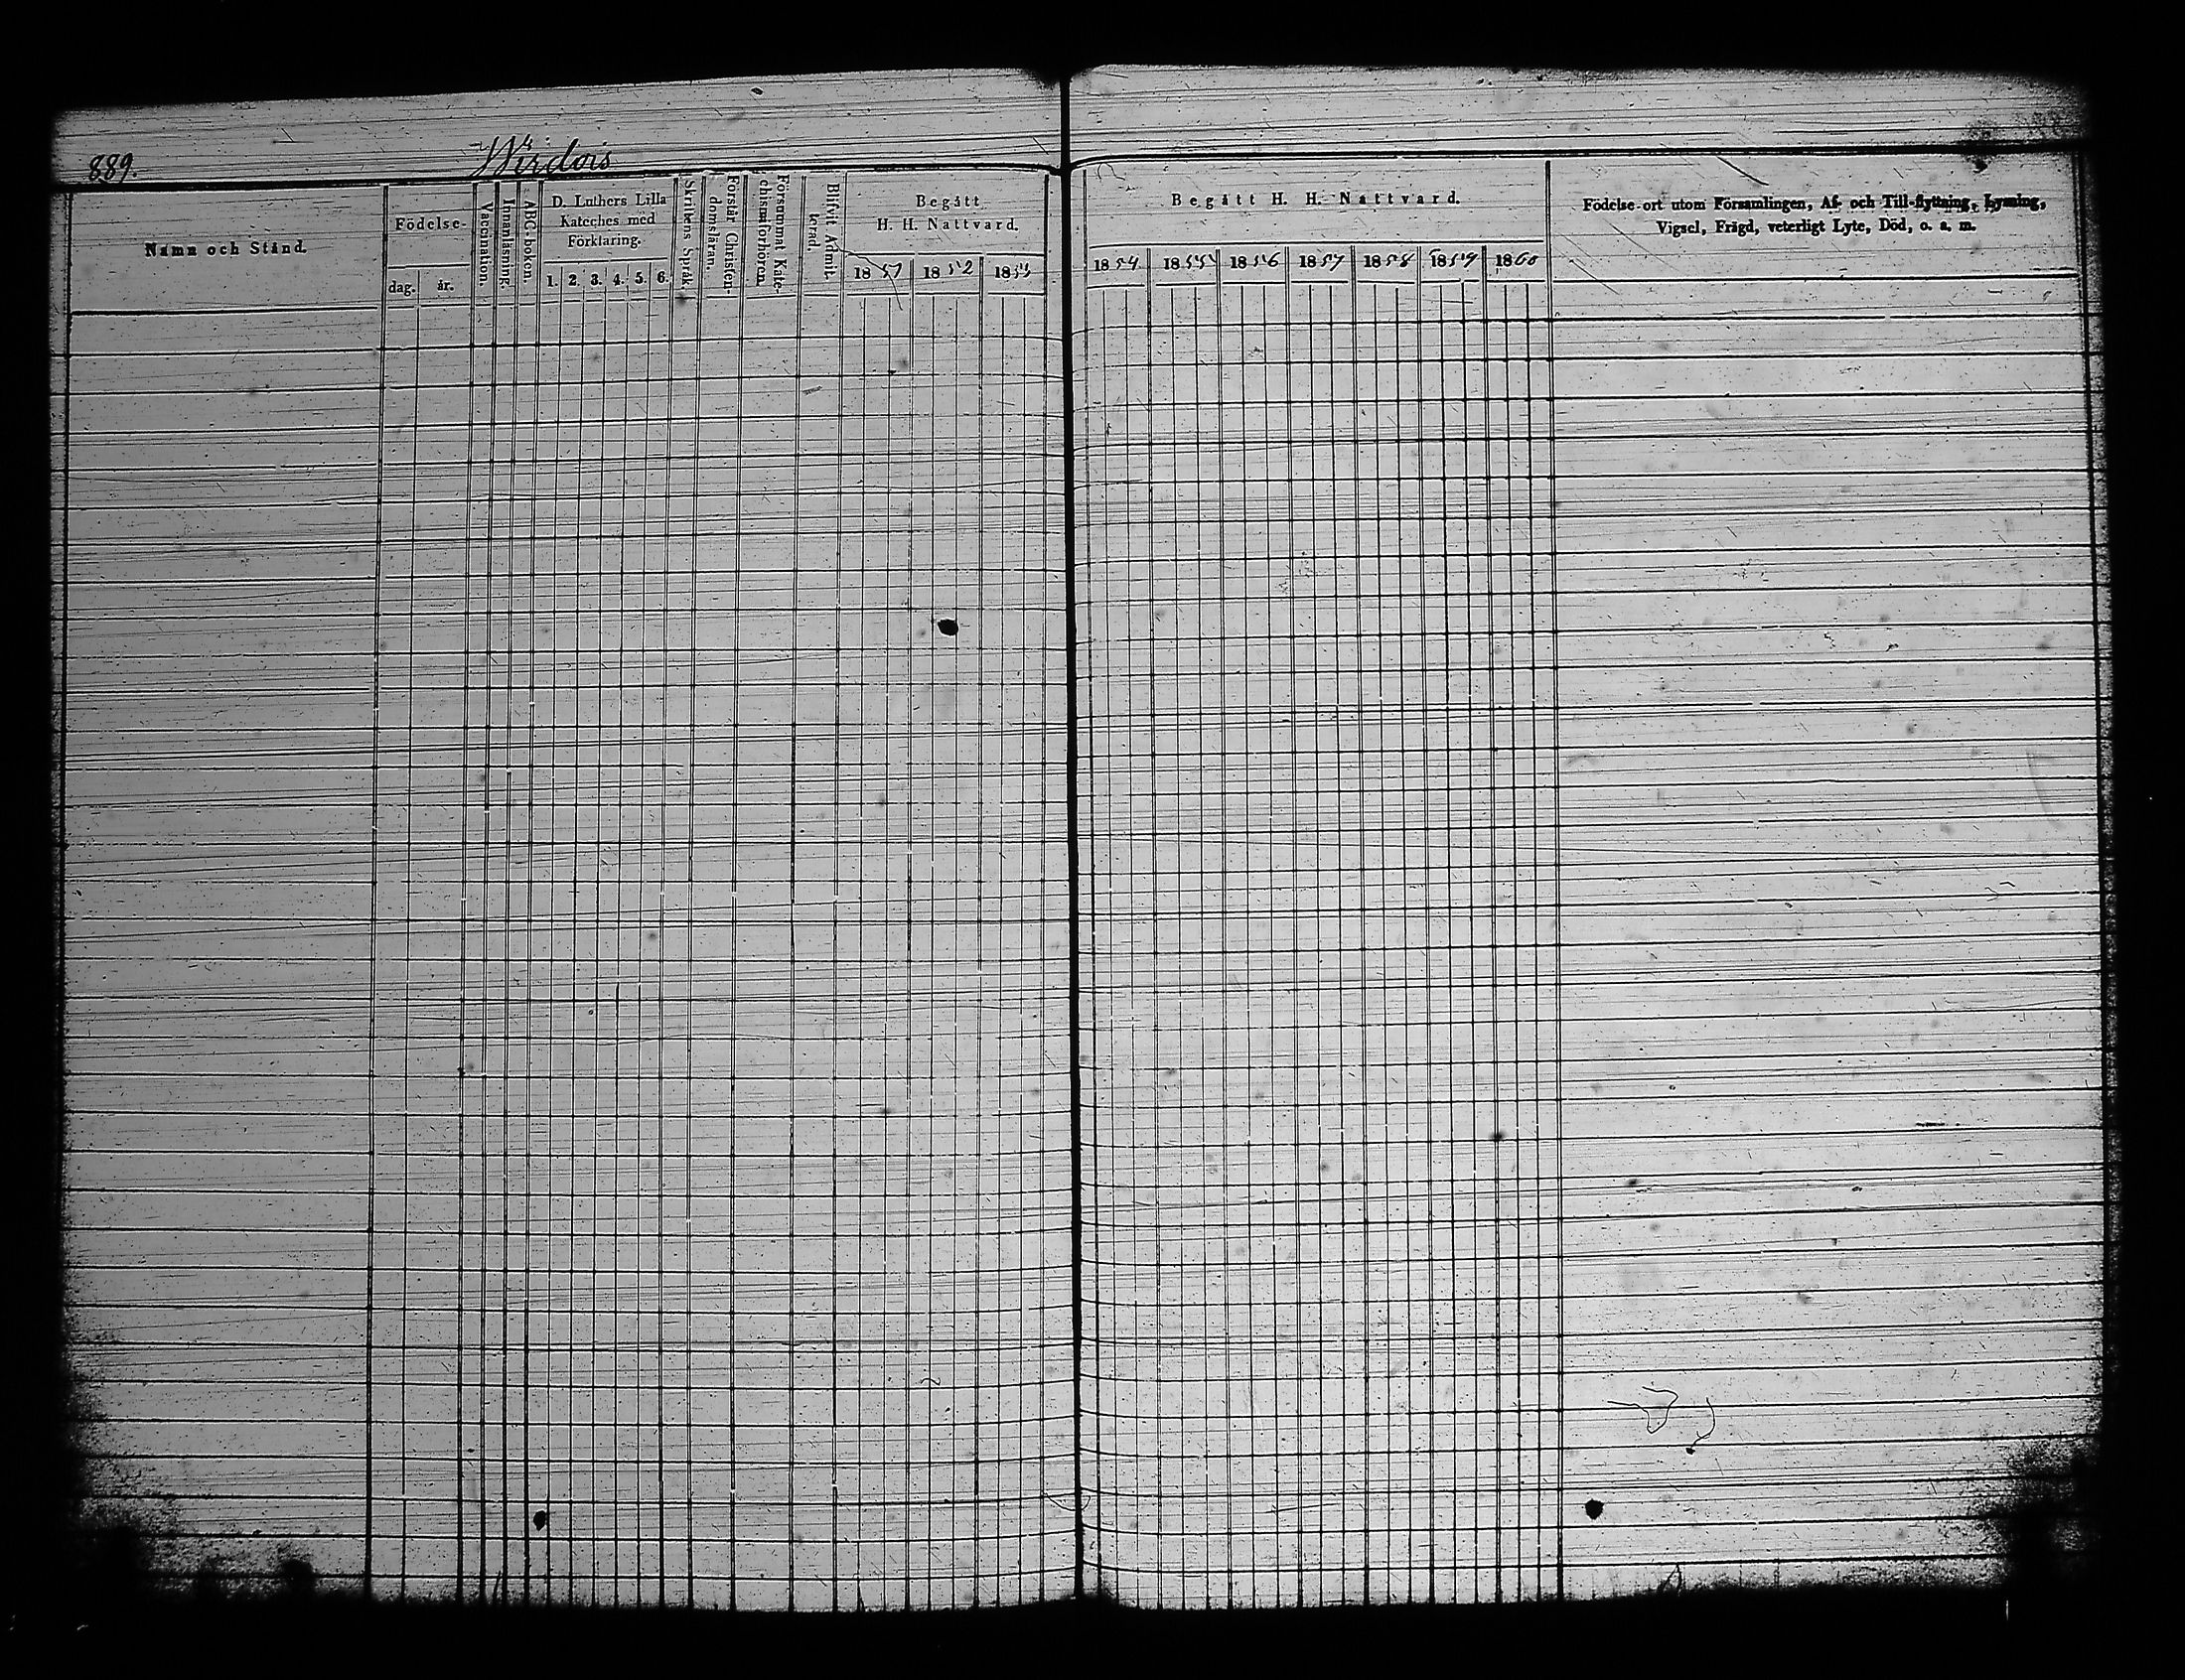 889.
Wirdois
Namn och Stånd.
Födelse-
dag.
år.
Vaccination.
Innanläsning.
ABC-boken.
D. Luthers Lilla
Kateches med
Förklaring.
1. 2. 3. 4. 5. 6.
Skriftens Språk.
Förstår Christen-
domsläran.
Försummat Kate-
chismiförhören.
Blifvit Admit-
terad.
Begått
H. H. Nattvard.
1851 1852 1853
Begått H. H. Nattvard.
1854 1855 1856 1857 1858 1859 1860
Födelse-ort utom Församlingen, Af- och Till-flyttning, Lysning,
Vigsel, Frägd, veterligt Lyte, Död, o. s. m.